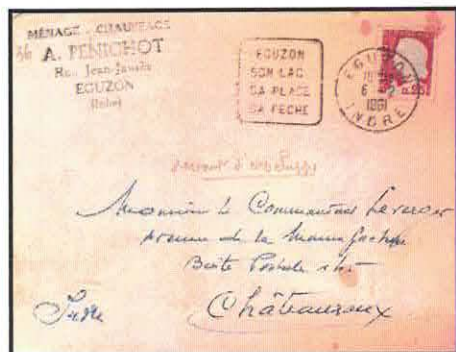 MÉNAGE - CHAUFFAGE
36 A. PENICHOT
Rue Jean-Jaurès
EGUZON
(Indre)
EGUZON
SON LAC
SA PLAGE
SA PECHE
EGUZON
6
1961
INDRE
Monsieur le Commandant
Avenue de la
Boite Postale
Indre
Châteauroux